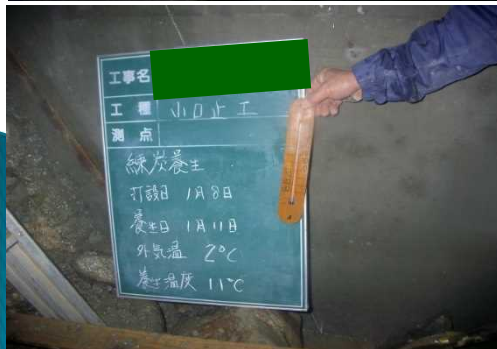 工事名
工種 小口止工
測点
練炭養生
打設日 1月8日
養生日 1月11日
外気温 2℃
養生温度 11℃